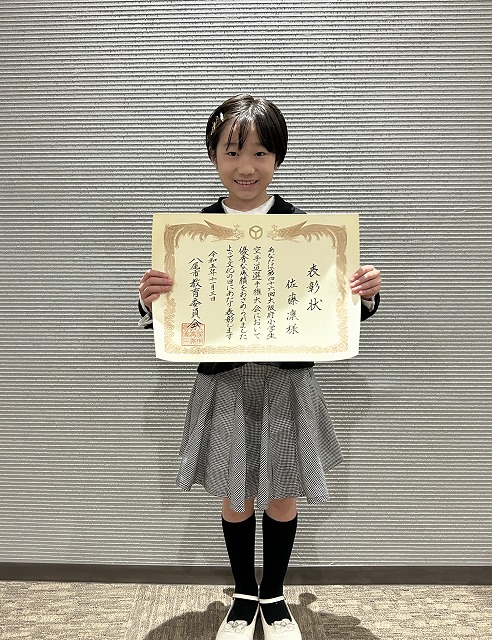 表彰状
佐藤凛様
あなたは第四十六回大阪府小学生
空手道選手権大会において
優秀な成績をおさめられました
よって文化の日にあたり表彰します
令和五年十一月三日
八尾市教育委員会